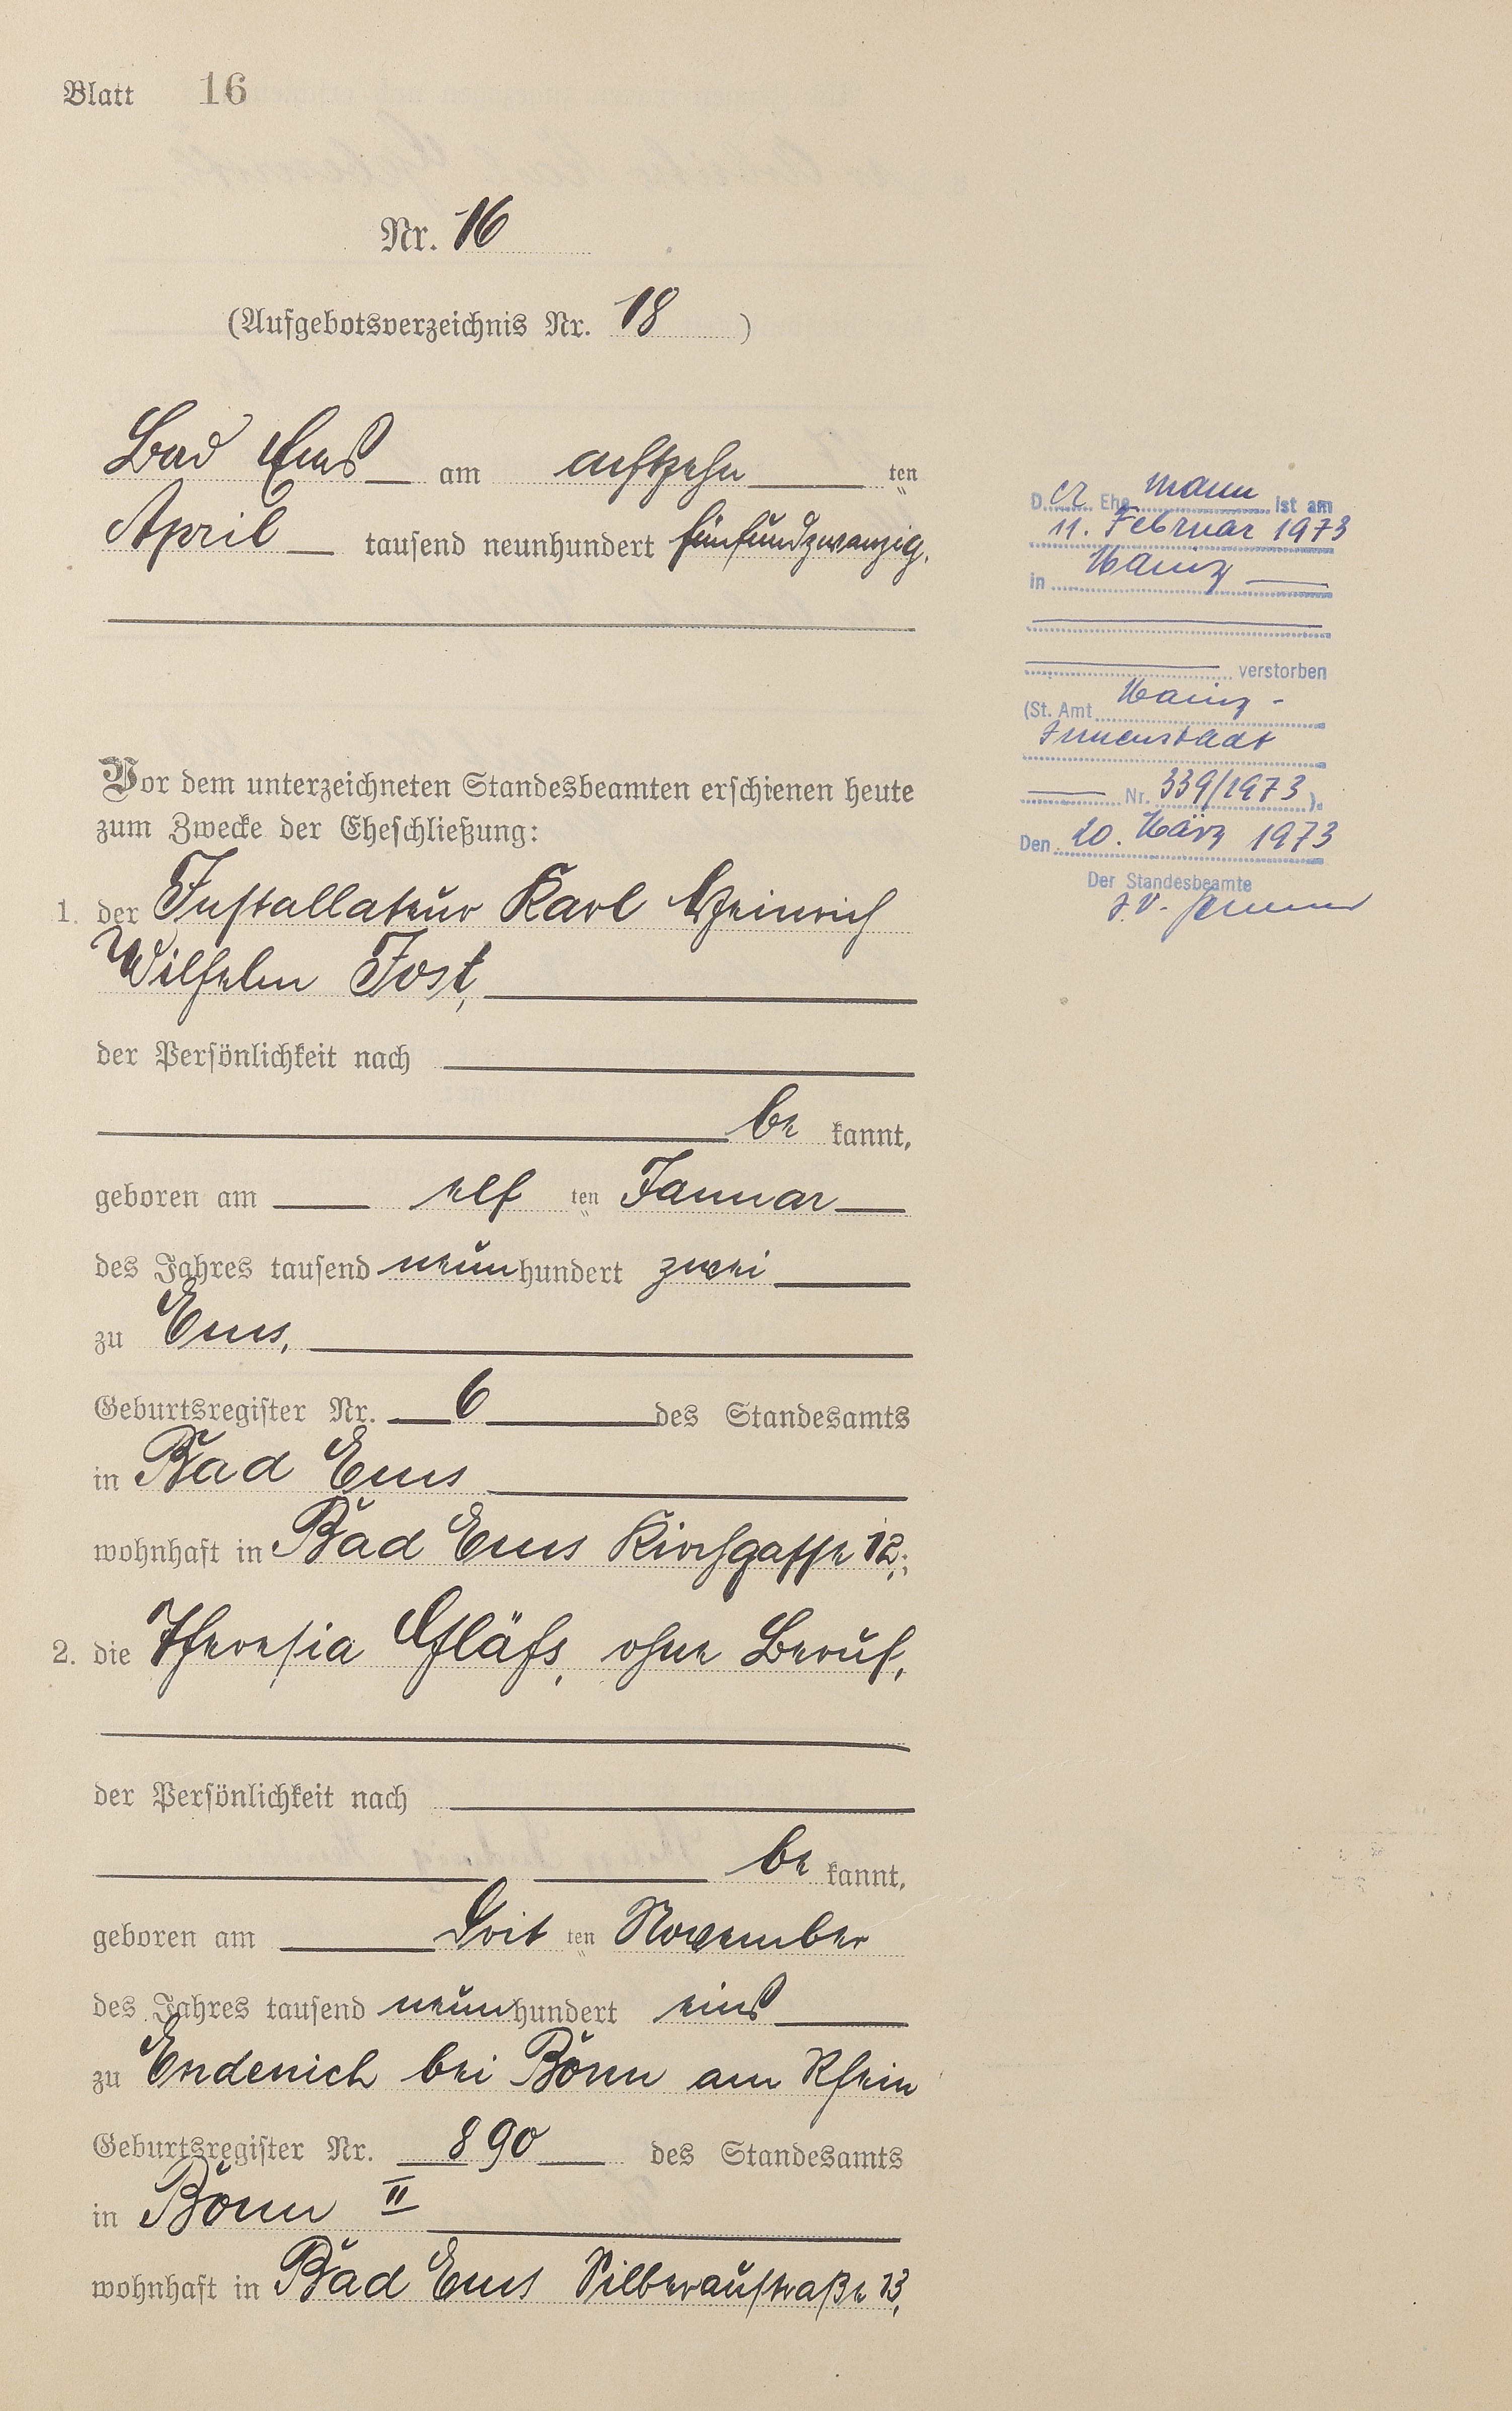 Blatt 16
Nr. 16
(Aufgebotsverzeichnis Nr. 18 )
Bad Ems am achtzehn ten
April tausend neunhundert fünfundzwanzig.
Vor dem unterzeichneten Standesbeamten erschienen heute
zum Zwecke der Eheschließung:
1. der Installateur Karl Heinrich
Wilhelm Jost,
der Persönlichkeit nach
be kannt,
geboren am elf ten Januar
des Jahres tausend neunhundert zwei
zu Ems,
Geburtsregister Nr. 6 des Standesamts
in Bad Ems
wohnhaft in Bad Ems Kirchgasse 12;
2. die Theresia Gläfs, ohne Beruf,
der Persönlichkeit nach
be kannt,
geboren am drit ten November
des Jahres tausend neunhundert eins
zu Endenich bei Bonn am Rhein
Geburtsregister Nr. 890 des Standesamts
in Bonn II
wohnhaft in Bad Ems Silberaustraße 13,
D er Ehe mann ist am
11. Februar 1973
in Mainz
verstorben
(St. Amt Mainz -
Innenstadt
Nr. 339/1973 ).
Den 20. März 1973
Der Standesbeamte
J.V.